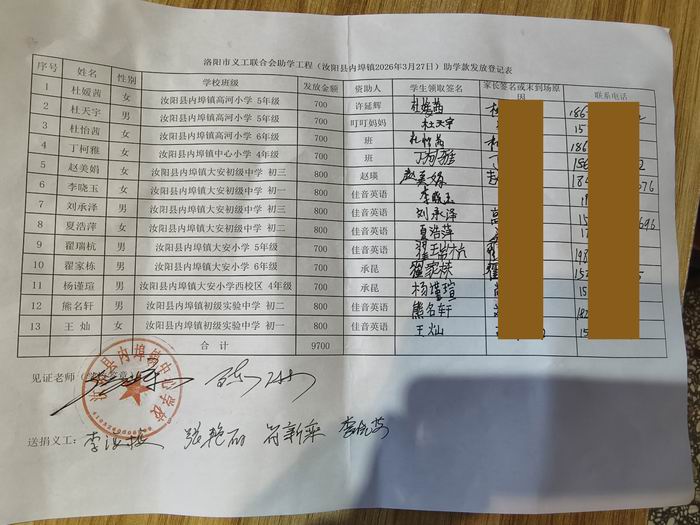 洛阳市义工联合会助学工程（汝阳县内埠镇2026年3月27日）助学款发放登记表
序号 姓名 性别 学校班级 发放金额 资助人 学生领取签名 家长签名或未到场原因 联系电话
1 杜媛茜 女 汝阳县内埠镇高河小学 5年级 700 许延辉 杜媛茜 186
2 杜天宇 男 汝阳县内埠镇高河小学 5年级 700 叮叮妈妈 杜天宇 15
3 杜怡茜 女 汝阳县内埠镇高河小学 6年级 700 班 杜怡茜 186
4 丁柯雅 女 汝阳县内埠镇中心小学 4年级 700 班 丁柯雅 156 2
5 赵美娟 女 汝阳县内埠镇大安初级中学 初三 800 赵瑛 赵美娟 184
6 李晓玉 女 汝阳县内埠镇大安初级中学 初一 800 佳音英语 李晓玉 676
7 刘承泽 男 汝阳县内埠镇大安初级中学 初三 800 佳音英语 刘承泽 15
8 夏浩萍 女 汝阳县内埠镇大安初级中学 初二 800 佳音英语 夏浩萍 696
9 翟瑞杭 男 汝阳县内埠镇大安小学 5年级 700 佳音英语 翟瑞杭 翟 198
10 翟家栋 男 汝阳县内埠镇大安小学 6年级 700 承昆 翟家栋 翟 15
11 杨谨瑄 男 汝阳县内埠镇大安小学西校区 4年级 700 承昆 杨谨瑄 15
12 熊名轩 男 汝阳县内埠镇初级实验中学 初二 800 佳音英语 熊名轩
13 王灿 女 汝阳县内埠镇初级实验中学 初一 800 佳音英语 王灿 15
合计 9700
见证老师（学校签章）
汝阳县内埠镇中心学校
送捐义工： 张艳丽 符新栾